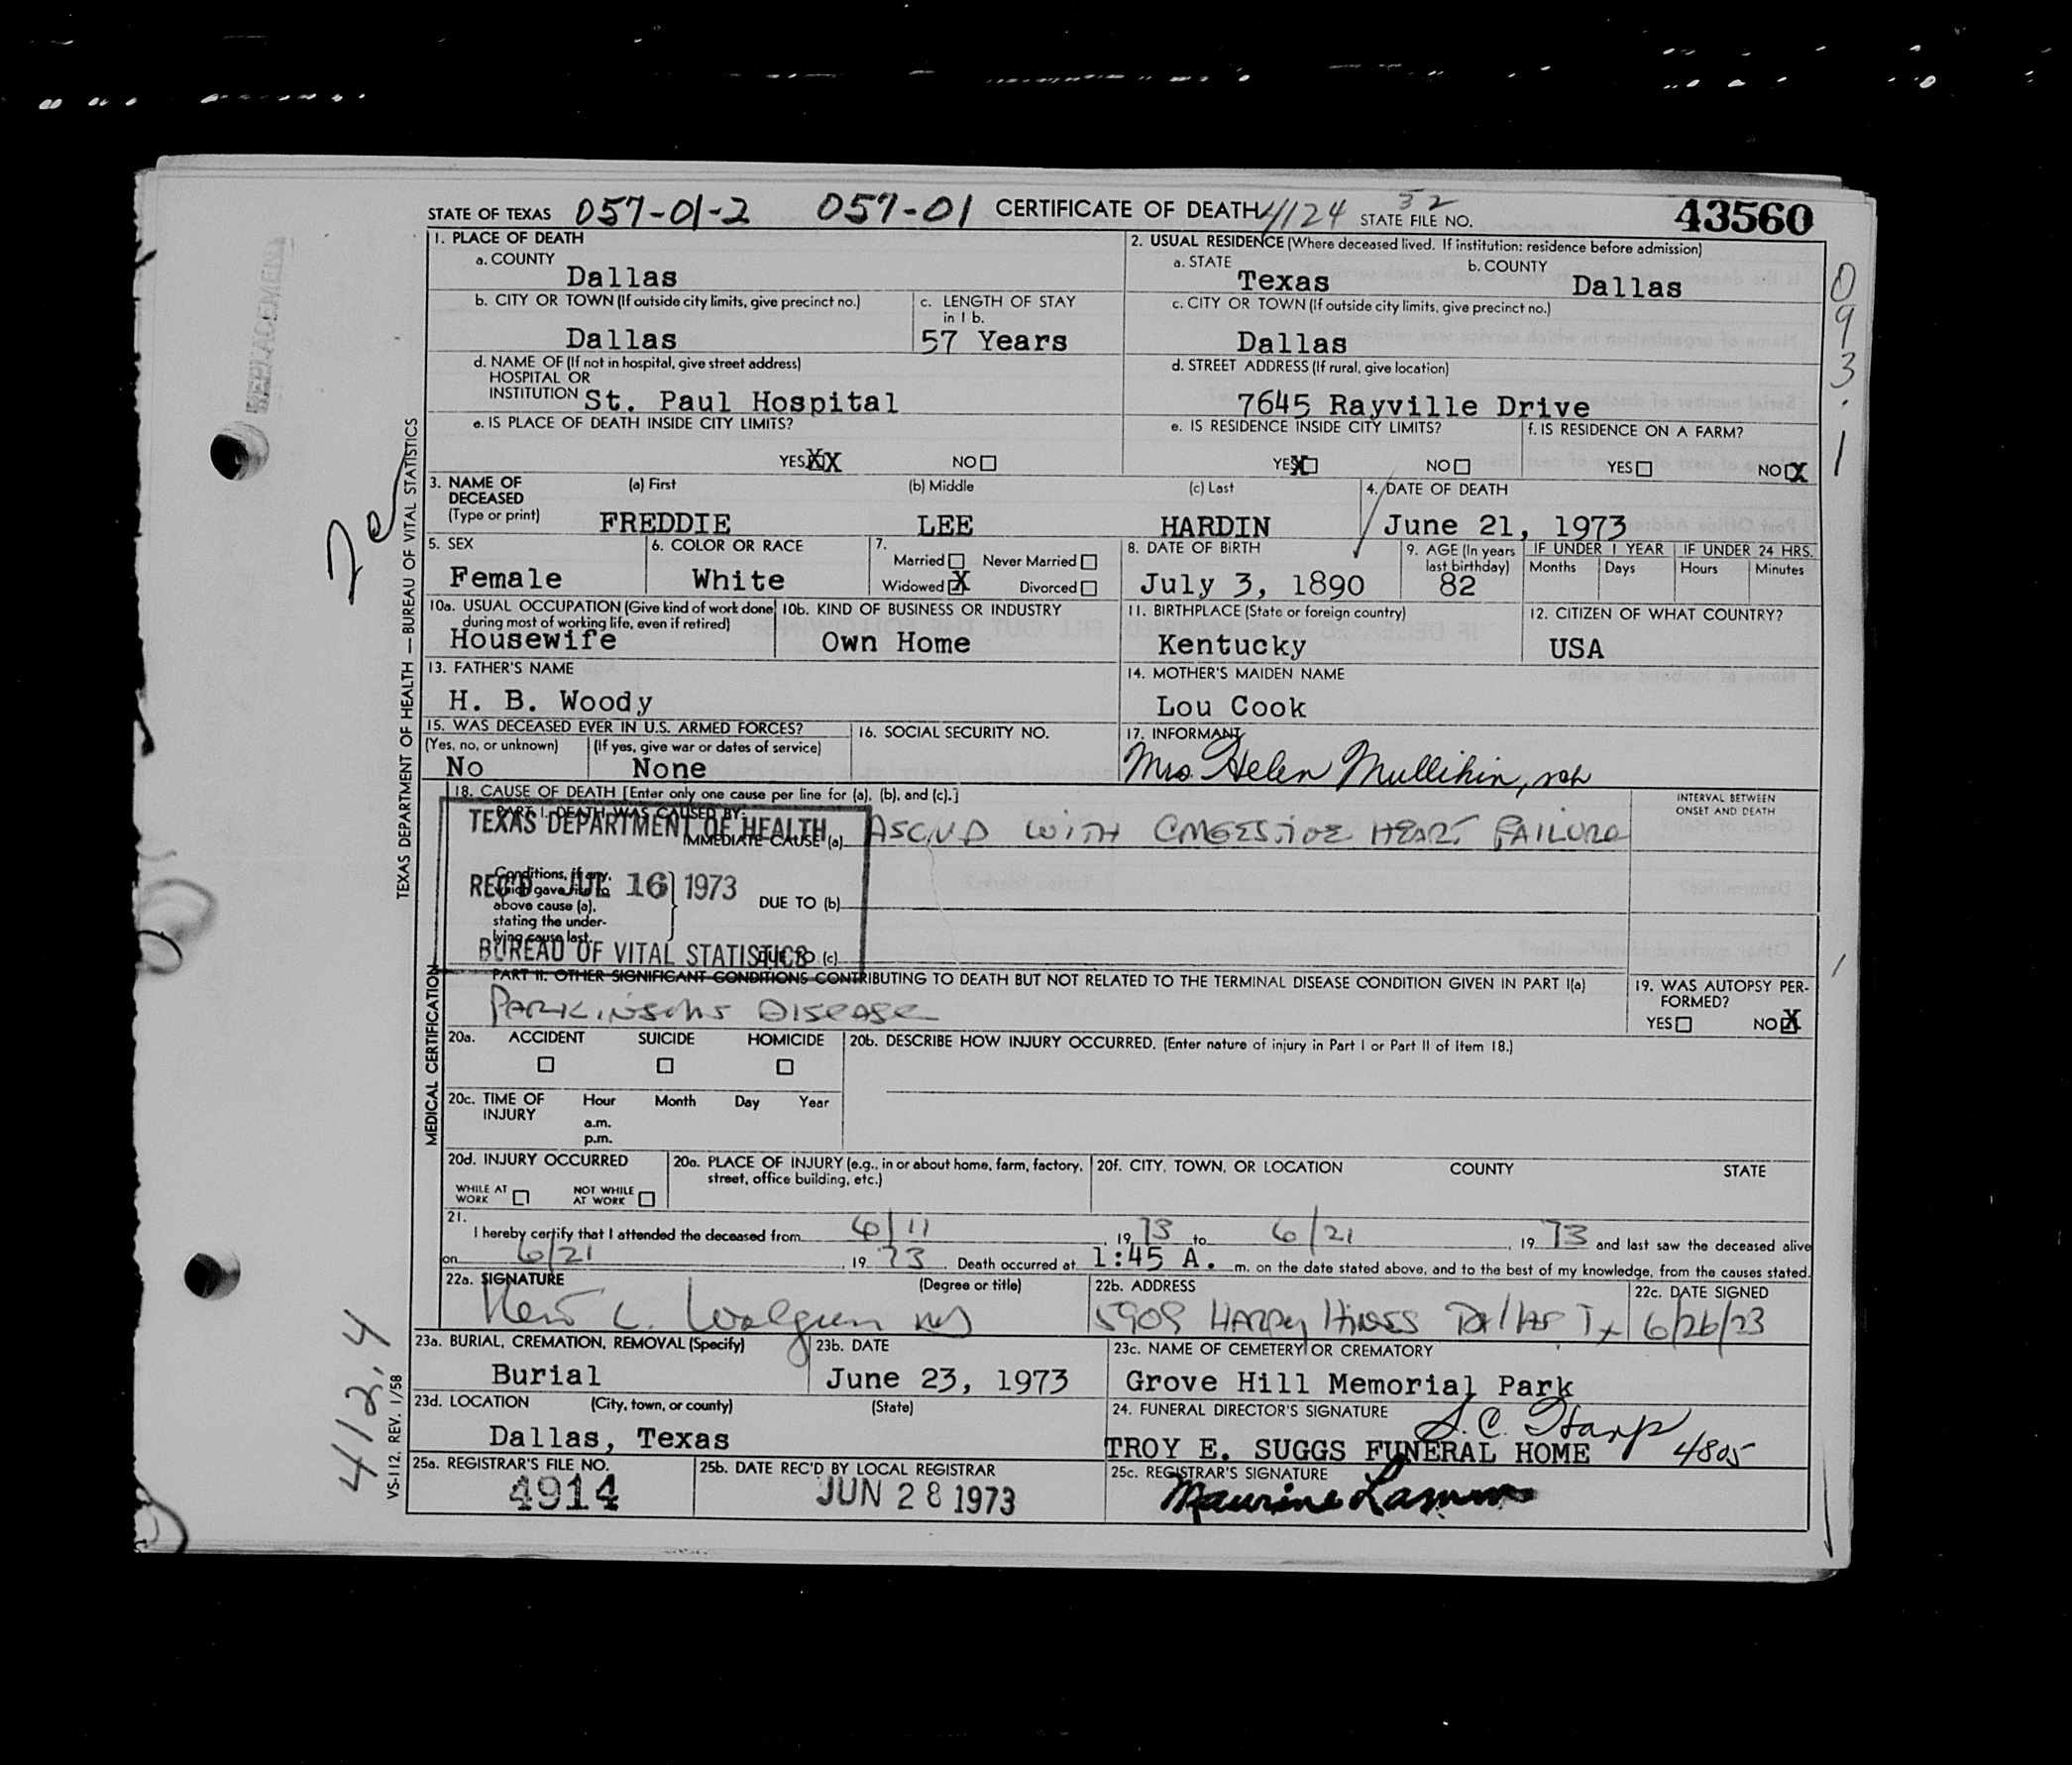 STATE OF TEXAS 057-01-2 057-01 CERTIFICATE OF DEATH 4124 32 STATE FILE NO. 43560
REPLACEMENT
1. PLACE OF DEATH
a. COUNTY
Dallas
2. USUAL RESIDENCE (Where deceased lived. If institution: residence before admission)
a. STATE
Texas
b. COUNTY
Dallas
b. CITY OR TOWN (If outside city limits, give precinct no.)
Dallas
c. LENGTH OF STAY in 1 b.
57 Years
c. CITY OR TOWN (If outside city limits, give precinct no.)
Dallas
d. NAME OF (If not in hospital, give street address)
HOSPITAL OR
INSTITUTION St. Paul Hospital
d. STREET ADDRESS (If rural, give location)
7645 Rayville Drive
e. IS PLACE OF DEATH INSIDE CITY LIMITS?
YES XX NO
e. IS RESIDENCE INSIDE CITY LIMITS?
YES X NO
f. IS RESIDENCE ON A FARM?
YES NO X
093.1
3. NAME OF DECEASED (Type or print)
(a) First (b) Middle (c) Last
FREDDIE LEE HARDIN
4. DATE OF DEATH
June 21, 1973
5. SEX
Female
6. COLOR OR RACE
White
7.
Married Never Married
Widowed X Divorced
8. DATE OF BIRTH
July 3, 1890
9. AGE (In years last birthday)
82
IF UNDER 1 YEAR
Months Days
IF UNDER 24 HRS.
Hours Minutes
10a. USUAL OCCUPATION (Give kind of work done during most of working life, even if retired)
Housewife
10b. KIND OF BUSINESS OR INDUSTRY
Own Home
11. BIRTHPLACE (State or foreign country)
Kentucky
12. CITIZEN OF WHAT COUNTRY?
USA
13. FATHER'S NAME
H. B. Woody
14. MOTHER'S MAIDEN NAME
Lou Cook
15. WAS DECEASED EVER IN U.S. ARMED FORCES?
(Yes, no, or unknown)
No
(If yes, give war or dates of service)
None
16. SOCIAL SECURITY NO.
17. INFORMANT
Mrs. Helen Mullikin,
18. CAUSE OF DEATH [Enter only one cause per line for (a), (b), and (c).]
INTERVAL BETWEEN ONSET AND DEATH
PART I. DEATH WAS CAUSED BY:
IMMEDIATE CAUSE (a) ASCVD WITH CONGESTIVE HEART FAILURE
TEXAS DEPARTMENT OF HEALTH
REC'D JUL 16 1973
BUREAU OF VITAL STATISTICS
Conditions, if any, which gave rise to above cause (a), stating the underlying cause last.
DUE TO (b)
DUE TO (c)
PART II. OTHER SIGNIFICANT CONDITIONS CONTRIBUTING TO DEATH BUT NOT RELATED TO THE TERMINAL DISEASE CONDITION GIVEN IN PART I(a)
PARKINSONS DISEASE
19. WAS AUTOPSY PERFORMED?
YES NO X
20a. ACCIDENT SUICIDE HOMICIDE
20b. DESCRIBE HOW INJURY OCCURRED. (Enter nature of injury in Part I or Part II of Item 18.)
20c. TIME OF INJURY
Hour Month Day Year
a.m.
p.m.
20d. INJURY OCCURRED
WHILE AT WORK NOT WHILE AT WORK
20e. PLACE OF INJURY (e.g., in or about home, farm, factory, street, office building, etc.)
20f. CITY, TOWN, OR LOCATION COUNTY STATE
21.
I hereby certify that I attended the deceased from 6/11, 1973 to 6/21, 1973 and last saw the deceased alive
on 6/21, 1973. Death occurred at 1:45 A. m. on the date stated above, and to the best of my knowledge, from the causes stated.
22a. SIGNATURE (Degree or title)
22b. ADDRESS
5909 HARRY HINES Dallas Tx
22c. DATE SIGNED
6/26/73
23a. BURIAL, CREMATION, REMOVAL (Specify)
Burial
23b. DATE
June 23, 1973
23c. NAME OF CEMETERY OR CREMATORY
Grove Hill Memorial Park
23d. LOCATION (City, town, or county) (State)
Dallas, Texas
24. FUNERAL DIRECTOR'S SIGNATURE
TROY E. SUGGS FUNERAL HOME 4805
25a. REGISTRAR'S FILE NO.
4914
25b. DATE REC'D BY LOCAL REGISTRAR
JUN 28 1973
25c. REGISTRAR'S SIGNATURE
TEXAS DEPARTMENT OF HEALTH — BUREAU OF VITAL STATISTICS
MEDICAL CERTIFICATION
VS-112, REV. 1/58
412.4